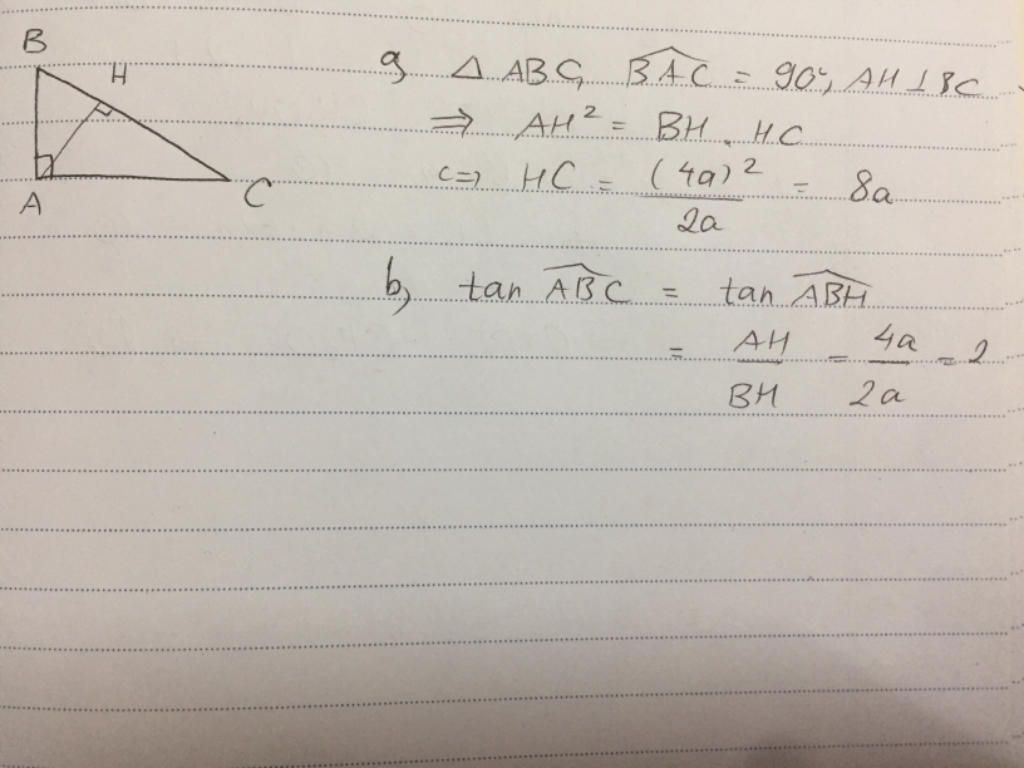 B
H
A
C
a, △ ABC, BAC = 90°, AH ⊥ BC
⇒ AH² = BH . HC
<=> HC = (4a)² / 2a = 8a
b, tan ABC = tan ABH
= AH / BH = 4a / 2a = 2